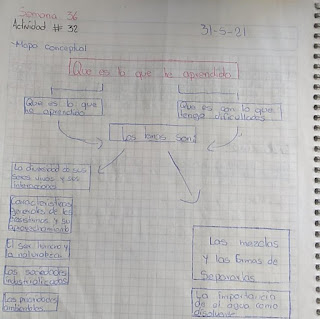 Semana 36
Actividad # 32
31-5-21
-Mapa conceptual
Que es lo que he aprendido
Que es lo que
he aprendido
Que es son lo que
tengo dificultades
Los temas son:
La diversidad de sus
seres vivos y sus
interacciones
Caracteristicas
generales de los
ecosistemas y su
aprovechamiento
El Ser humano y
la naturaleza
Las sociedades
industrializadas
Las prioridades
ambientales
Las mezclas
y las formas de
Separarlas
La importancia
de el agua como
disolvente